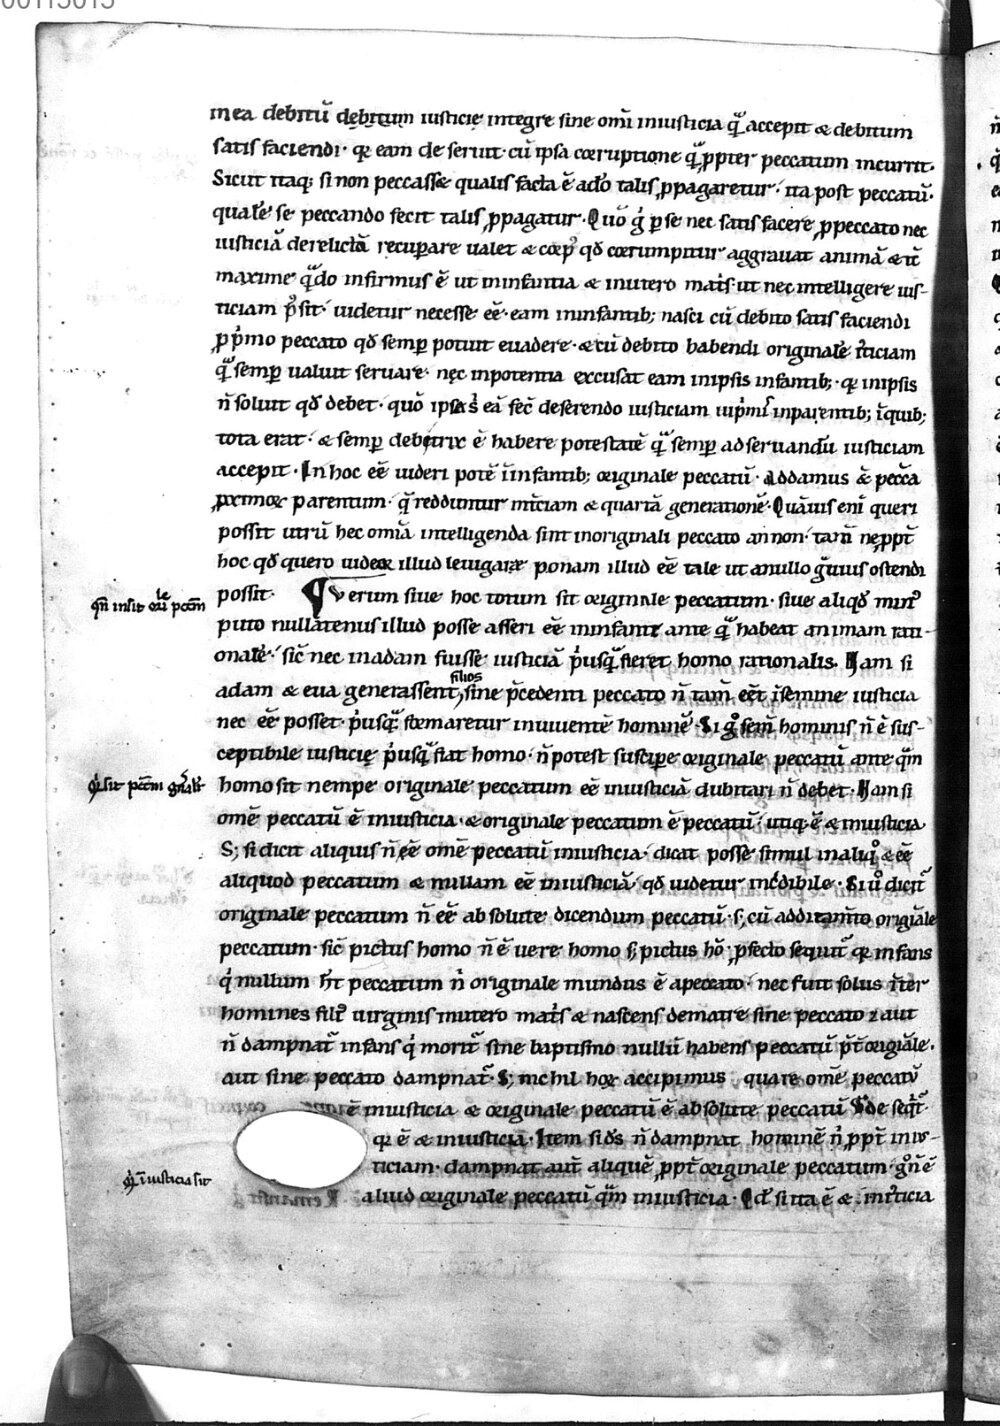 00113013
in ea debitū debitum iusticię integre sine om̄i iniusticia quā accepit & debitum
satis faciendi · qr eam deseruit · cū ipsa corruptione quā ꝓpter peccatum incurrit.
Sicut itaq; si non peccasset qualis facta ē a dō talis ꝓpagaretur · ita post peccatū ·
qualē se peccando fecit talis ꝓpagatur · Quō g̊ ꝑ se nec satis facere ꝓ peccato nec
iusticiā derelictā recuꝑare ualet & corpꝰ qđ corrumpitur aggrauat animā & tē
maxime qn̄do infirmus ē ut in infantia & in utero mat̄s ut nec intelligere ius-
ticiam p̊ssit · uidetur necesse eē · eam in infantib; nasci cū debito satis faciendi
ꝓ p̓mo peccato qđ semꝑ potuit euadere · & cū debito habendi originalē i̓ticiam
quā semꝑ ualuit seruare · nęc inpotentia excusat eam in ipsis infantib; · qr in ipsis
n̄ soluit qđ debet · quō ipsa s̓ eā fec̄ deserendo iusticiam in p̓mis in parentib; in quib;
tota erat · & semꝑ debitrix ē habere potestatē quā semꝑ ad seruandū iusticiam
accepit · In hoc eē uideri potē in infantib; originale peccatū · Addamus & pecc̄a
ꝓximoꝝ parentum · quę redduntur in t̓ciam & quartā generationē · Quāuis enī queri
possit utrū hec omīa intelligenda sint in originali peccato an non · tam̄ ne ꝓpt̄
hoc qđ quero uidear illud leuigare ponam illud eē tale ut a nullo g̓uius ostendi
possit · Verum siue hoc totum sit originale peccatum · siue aliqđ minꝰ
qn̄ insit origīle pcc̄m
puto nullatenus illud posse asseri eē in infante ante quā habeat animam rati-
onalē · sic̄ nec in adam fuisse iusticiā p̓usquā fieret homo rationalis. Nam si
adam & eua generassent filios sine p̄cedenti peccato n̄ tam̄ eēt in semine iusticia
nec eē posset · p̓usquā formaretur in uiuentē hominē · Si g̊ sem̄ hominis n̄ ē sus-
ceptibile iusticię p̓usquā fiat homo · n̄ potest susciꝑe originale peccatū ante quā
homo sit nempe originale peccatum eē iniusticiā dubitari n̄ debet · Nam si
qđ sit pcc̄m
omē peccatū ē iniusticia · & originale peccatum ē peccatū · utiq; ē & iniusticia
S; si dicit aliquis n̄ eē omē peccatū iniusticia · dicat posse simul in aliq̊ & eē
aliquod peccatum & nullam eē iniusticiā · qđ uidetur inc̓dibile · Si ů dicit̄
originale peccatum n̄ eē absolute dicendum peccatū · s; cū additam̄to originale
peccatum · sic̄ pictus homo n̄ ē uere homo s; pictus hō · ꝓfecto sequit̄ qr infans
q̓ nullum h̄t peccatum n̓ originale mundus ē a peccato · nec fuit solus inter
homines filiꝰ uirginis in utero mat̄s & nascens de matre sine peccato · & aut
n̄ dampnat̄ infans q̓ morit̄ sine baptismo nullū habens peccatū p̄t originale ·
aut sine peccato dampnat̄ · S; nichil hoꝝ accipimus quare omē peccatū
ē iniusticia & originale peccatū ē absolute peccatū Vnde seqit̄ ·
qr ē & iniusticia · Item si đs n̄ dampnat hominē n̓ ꝓpt̄ inius-
ticiam · dampnat aut̄ aliquē ꝓpt̄ originale peccatum · g̊ n̄ ē
qđ iniusticia sit
aliud originale peccatū quā iniusticia · Qđ si ita ē & iniusticia